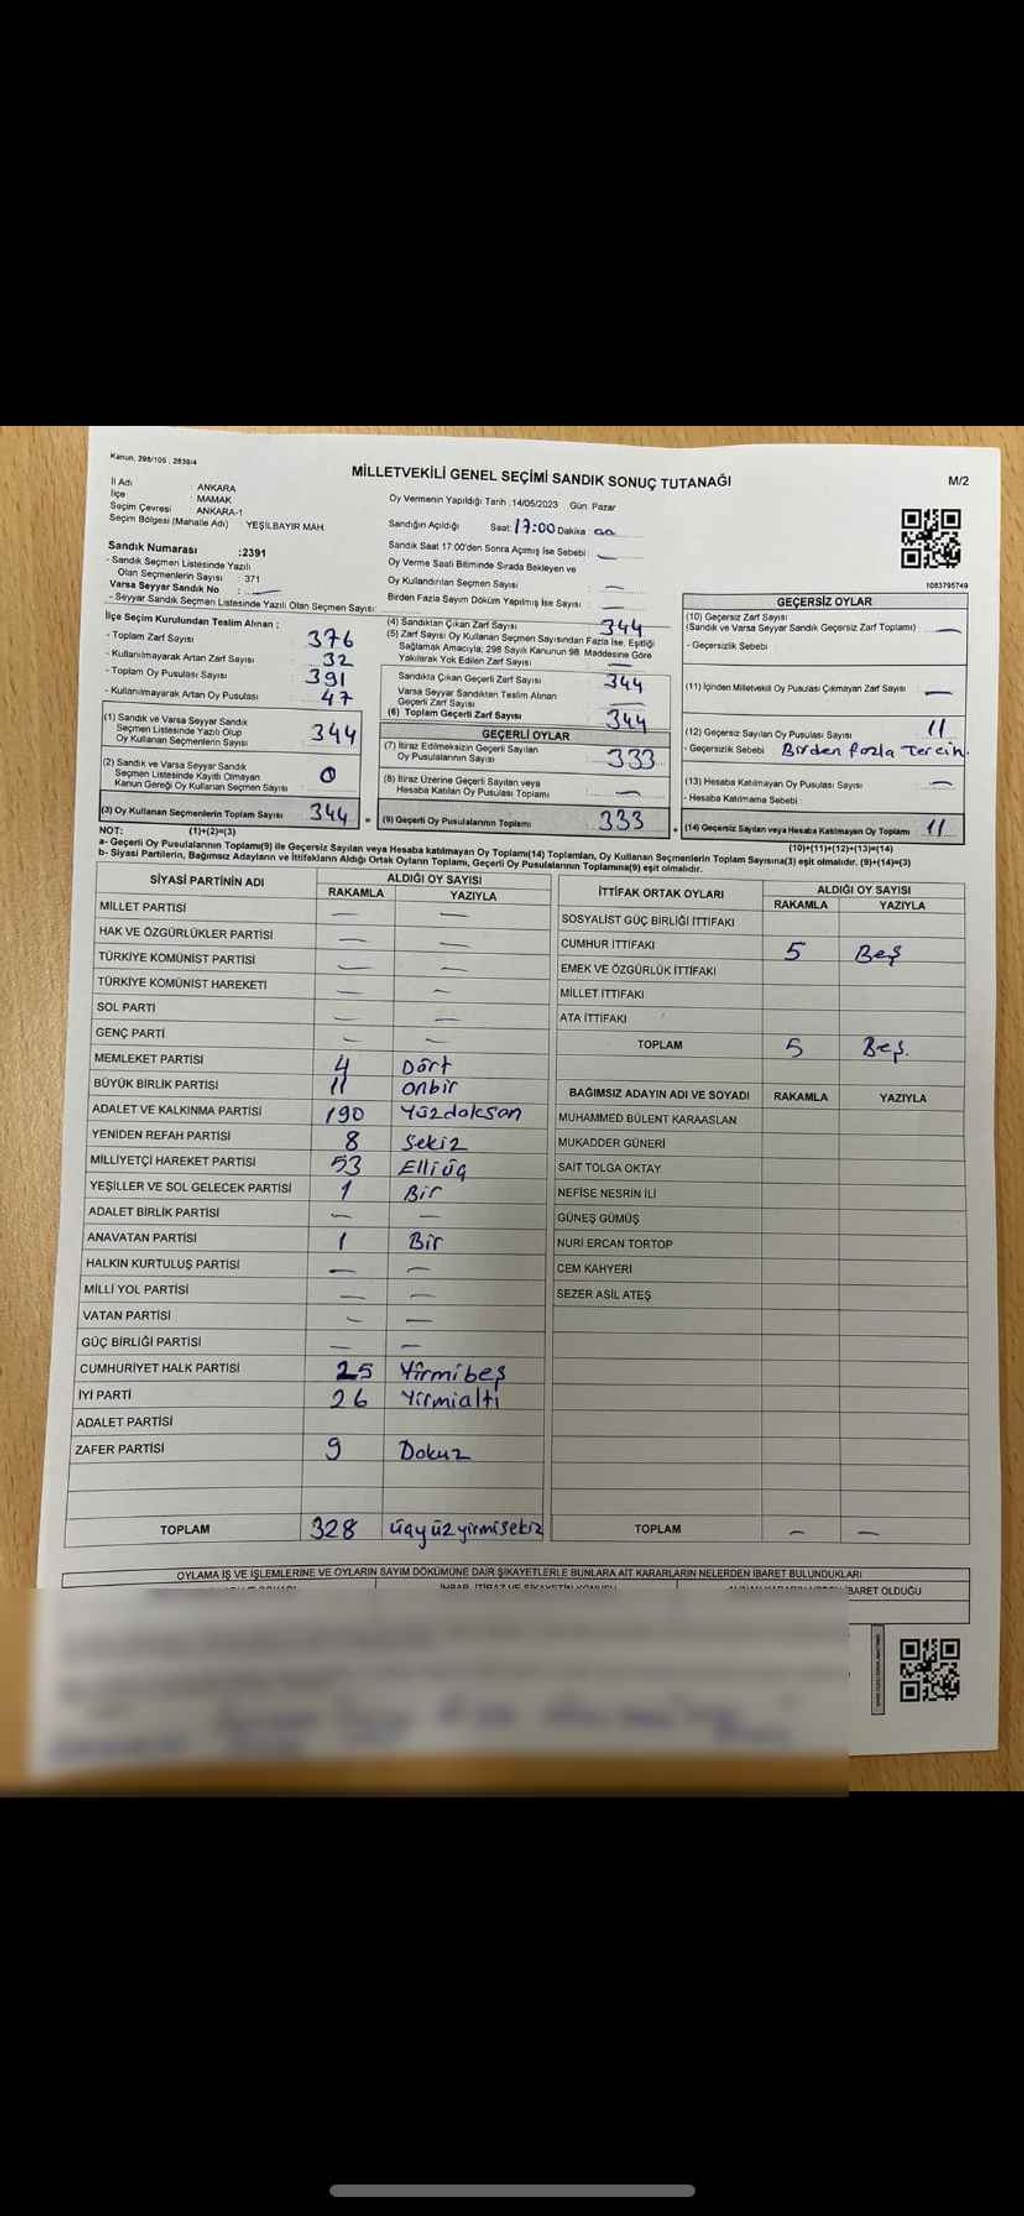 Kanun, 298/105 , 2839/4
MİLLETVEKİLİ GENEL SEÇİMİ SANDIK SONUÇ TUTANAĞI
M/2
İl Adı : ANKARA
İlçe : MAMAK
Seçim Çevresi : ANKARA-1
Seçim Bölgesi (Mahalle Adı) YEŞİLBAYIR MAH.
Oy Vermenin Yapıldığı Tarih :14/05/2023 Gün Pazar
Sandığın Açıldığı Saat: 17:00 Dakika 00
Sandık Saat 17:00'den Sonra Açılmış İse Sebebi : —
Oy Verme Saati Bitiminde Sırada Bekleyen ve
Oy Kullandırılan Seçmen Sayısı : —
Birden Fazla Sayım Döküm Yapılmış İse Sayısı : —
Sandık Numarası :2391
- Sandık Seçmen Listesinde Yazılı
Olan Seçmenlerin Sayısı : 371
Varsa Seyyar Sandık No : —
- Seyyar Sandık Seçmen Listesinde Yazılı Olan Seçmen Sayısı:
1083795749
İlçe Seçim Kurulundan Teslim Alınan :
- Toplam Zarf Sayısı 376
- Kullanılmayarak Artan Zarf Sayısı 32
- Toplam Oy Pusulası Sayısı 391
- Kullanılmayarak Artan Oy Pusulası 47
(1) Sandık ve Varsa Seyyar Sandık
Seçmen Listesinde Yazılı Olup
Oy Kullanan Seçmenlerin Sayısı 344
(2) Sandık ve Varsa Seyyar Sandık
Seçmen Listesinde Kayıtlı Olmayan
Kanun Gereği Oy Kullanan Seçmen Sayısı 0
(3) Oy Kullanan Seçmenlerin Toplam Sayısı 344 =
(1)+(2)=(3)
(4) Sandıktan Çıkan Zarf Sayısı 344
(5) Zarf Sayısı Oy Kullanan Seçmen Sayısından Fazla İse, Eşitliği
Sağlamak Amacıyla; 298 Sayılı Kanunun 98. Maddesine Göre
Yakılarak Yok Edilen Zarf Sayısı —
Sandıkta Çıkan Geçerli Zarf Sayısı 344
Varsa Seyyar Sandıkten Teslim Alınan
Geçerli Zarf Sayısı —
(6) Toplam Geçerli Zarf Sayısı 344
GEÇERLİ OYLAR
(7) İtiraz Edilmeksizin Geçerli Sayılan
Oy Pusulalarının Sayısı 333
(8) İtiraz Üzerine Geçerli Sayılan veya
Hesaba Katılan Oy Pusulası Toplamı —
(9) Geçerli Oy Pusulalarının Toplamı 333 +
GEÇERSİZ OYLAR
(10) Geçersiz Zarf Sayısı
(Sandık ve Varsa Seyyar Sandık Geçersiz Zarf Toplamı) —
- Geçersizlik Sebebi
(11) İçinden Milletvekili Oy Pusulası Çıkmayan Zarf Sayısı —
(12) Geçersiz Sayılan Oy Pusulası Sayısı 11
- Geçersizlik Sebebi Birden fazla Tercih.
(13) Hesaba Katılmayan Oy Pusulası Sayısı —
- Hesaba Katılmama Sebebi :
(14) Geçersiz Sayılan veya Hesaba Katılmayan Oy Toplamı 11
(10)+(11)+(12)+(13)=(14)
NOT:
a- Geçerli Oy Pusulalarının Toplamı(9) ile Geçersiz Sayılan veya Hesaba katılmayan Oy Toplamı(14) Toplamları, Oy Kullanan Seçmenlerin Toplam Sayısına(3) eşit olmalıdır. (9)+(14)=(3)
b- Siyasi Partilerin, Bağımsız Adayların ve İttifakların Aldığı Ortak Oyların Toplamı, Geçerli Oy Pusulalarının Toplamına(9) eşit olmalıdır.
SİYASİ PARTİNİN ADI ALDIĞI OY SAYISI
RAKAMLA YAZIYLA
MİLLET PARTİSİ — —
HAK VE ÖZGÜRLÜKLER PARTİSİ — —
TÜRKİYE KOMÜNİST PARTİSİ — —
TÜRKİYE KOMÜNİST HAREKETİ — —
SOL PARTİ — —
GENÇ PARTİ — —
MEMLEKET PARTİSİ 4 Dört
BÜYÜK BİRLİK PARTİSİ 11 onbir
ADALET VE KALKINMA PARTİSİ 190 Yüzdoksan
YENİDEN REFAH PARTİSİ 8 Sekiz
MİLLİYETÇİ HAREKET PARTİSİ 53 Elliüç
YEŞİLLER VE SOL GELECEK PARTİSİ 1 Bir
ADALET BİRLİK PARTİSİ — —
ANAVATAN PARTİSİ 1 Bir
HALKIN KURTULUŞ PARTİSİ — —
MİLLİ YOL PARTİSİ — —
VATAN PARTİSİ — —
GÜÇ BİRLİĞİ PARTİSİ — —
CUMHURİYET HALK PARTİSİ 25 Yirmibeş
İYİ PARTİ 26 Yirmialtı
ADALET PARTİSİ
ZAFER PARTİSİ 9 Dokuz
TOPLAM 328 üçyüzyirmisekiz
İTTİFAK ORTAK OYLARI ALDIĞI OY SAYISI
RAKAMLA YAZIYLA
SOSYALİST GÜÇ BİRLİĞİ İTTİFAKI
CUMHUR İTTİFAKI 5 Beş
EMEK VE ÖZGÜRLÜK İTTİFAKI
MİLLET İTTİFAKI
ATA İTTİFAKI
TOPLAM 5 Beş.
BAĞIMSIZ ADAYIN ADI VE SOYADI RAKAMLA YAZIYLA
MUHAMMED BÜLENT KARAASLAN
MUKADDER GÜNERİ
SAİT TOLGA OKTAY
NEFİSE NESRİN İLİ
GÜNEŞ GÜMÜŞ
NURİ ERCAN TORTOP
CEM KAHYERİ
SEZER ASİL ATEŞ
TOPLAM — —
OYLAMA İŞ VE İŞLEMLERİNE VE OYLARIN SAYIM DÖKÜMÜNE DAİR ŞİKAYETLERLE BUNLARA AİT KARARLARIN NELERDEN İBARET BULUNDUKLARI
İBARET OLDUĞU